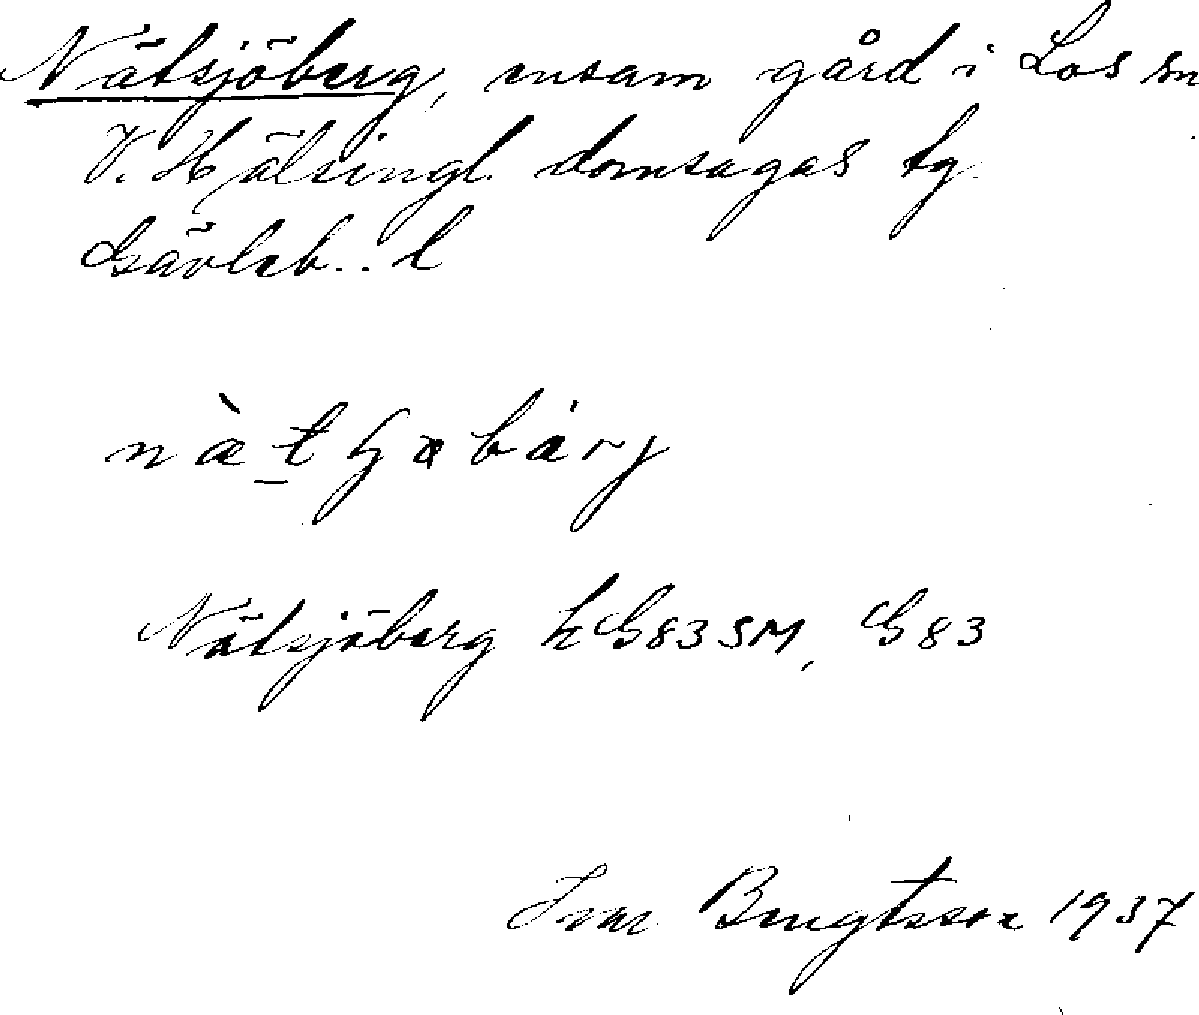 Nätsjöberg, ensam gård i Los sn
V. Hälsingl. domsagas tg.
Gävleb. l
Nätsjöberg k G83SM, G83
Ivar Bengtsson 1937